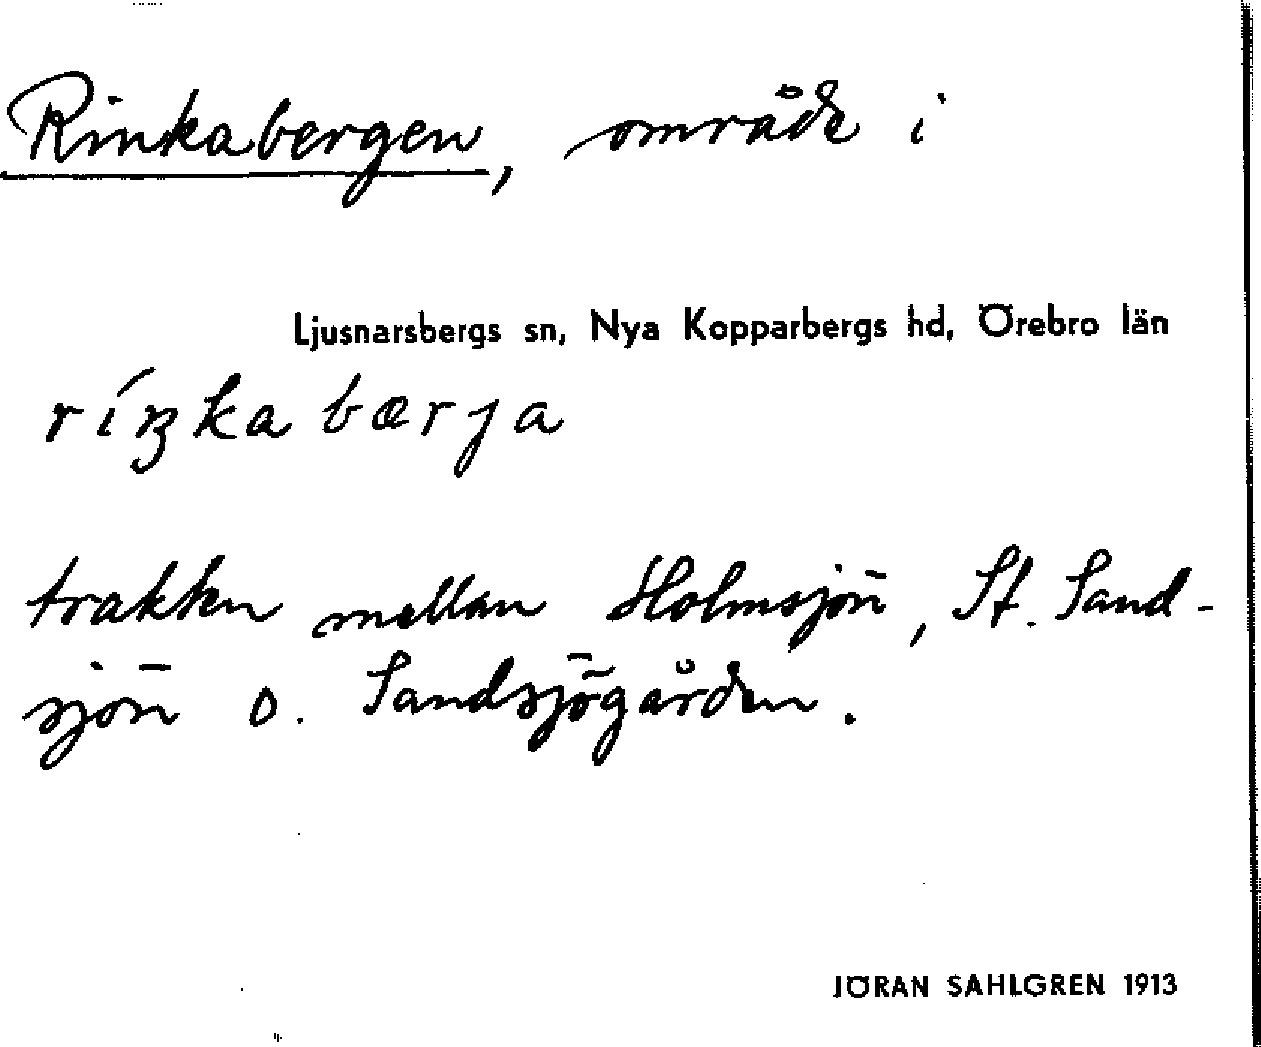 Rinkabergen, område i
Ljusnarsbergs sn, Nya Kopparbergs hd, Örebro län
ríŋka bærja
trakten mellan Holmsjön, St. Sand-
sjön o. Sandsjögården.
JÖRAN SAHLGREN 1913